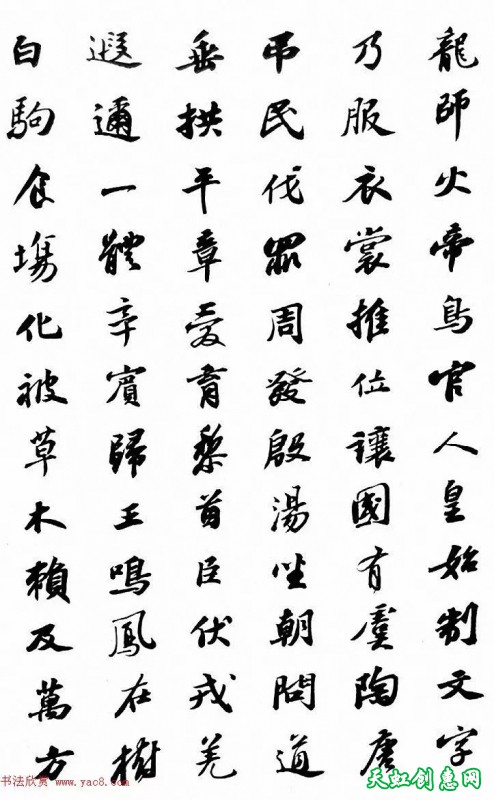 龍師火帝鳥官人皇始制文字
乃服衣裳推位讓國有虞陶唐
吊民伐罪周發殷湯坐朝問道
垂拱平章愛育黎首臣伏戎羌
遐邇一體率賓歸王鳴鳳在樹
白駒食塲化被草木賴及萬方
书法欣赏 www.yac8.com
天虹创惠网